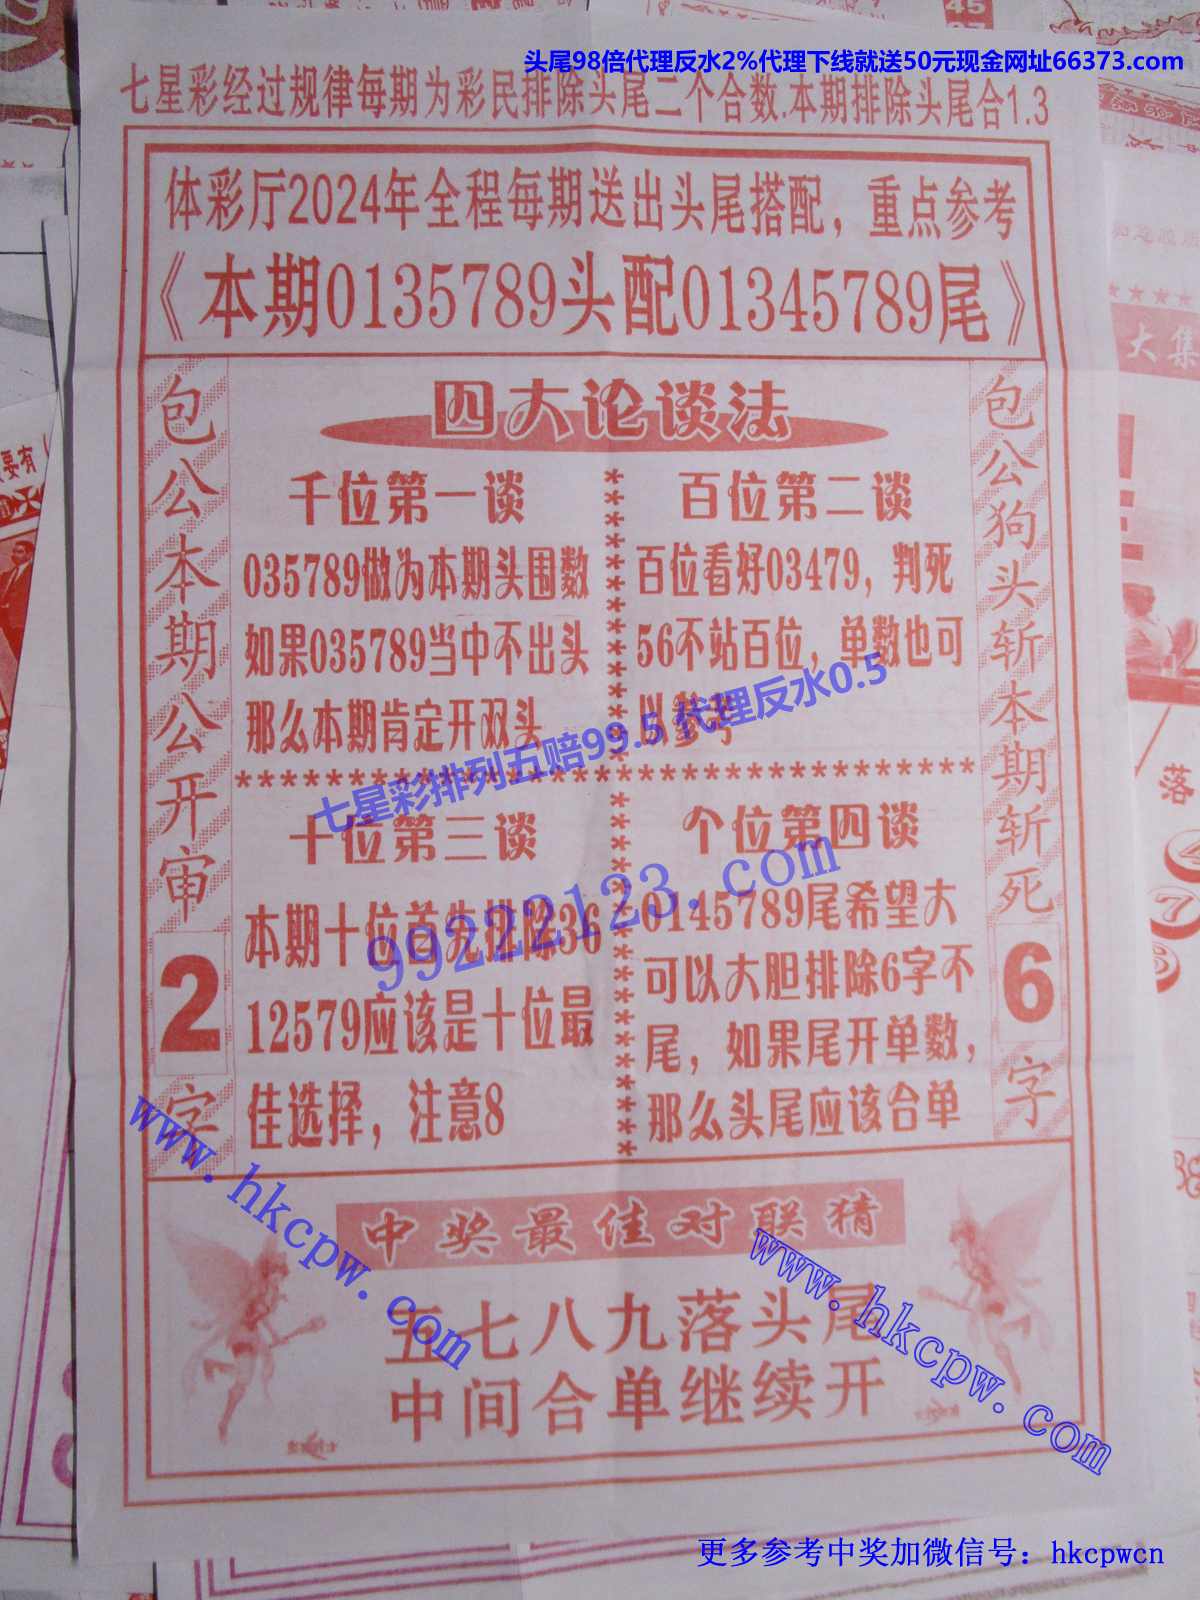 头尾98倍代理反水2%代理下线就送50元现金网址66373.com
七星彩经过规律每期为彩民排除头尾二个合数.本期排除头尾合1.3
体彩厅2024年全程每期送出头尾搭配，重点参考
《本期0135789头配01345789尾》
包公本期公开审2字
四大论谈法
千位第一谈
035789做为本期头围数
如果035789当中不出头
那么本期肯定开双头
百位第二谈
百位看好03479，判死
56不站百位，单数也可
以参考
十位第三谈
本期十位首先排除36
12579应该是十位最
佳选择，注意8
个位第四谈
0145789尾希望大
可以大胆排除6字不
尾，如果尾开单数，
那么头尾应该合单
包公狗头斩本期斩死6字
七星彩排列五赔99.5 代理反水0.5
99222123.com
中奖最佳对联猜
五七八九落头尾
中间合单继续开
www.hkcpw.com
www.hkcpw.com
更多参考中奖加微信号：hkcpwcn
大集
落
要有
45